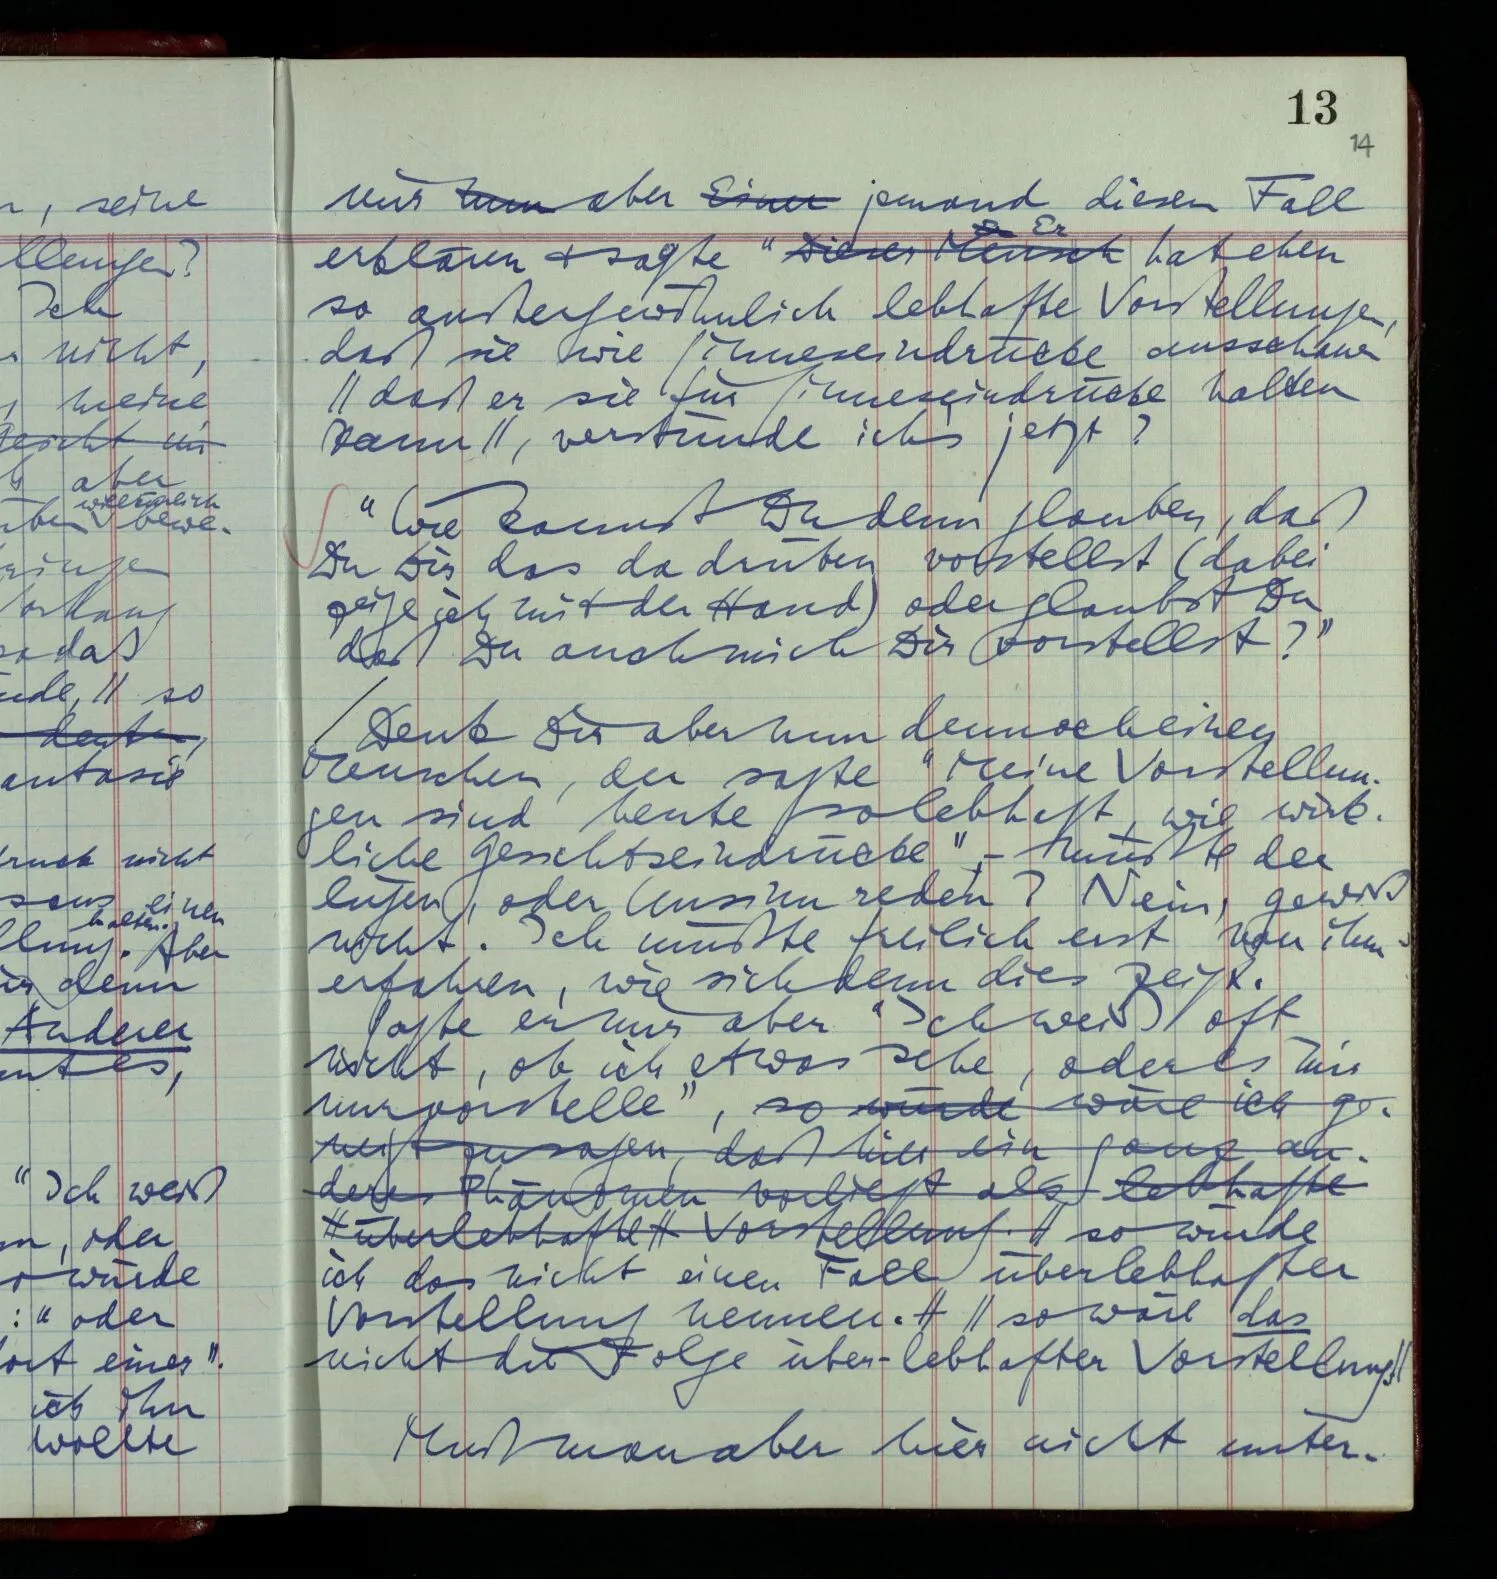 n, seine
llungen?
Ich
nicht,
, meine
aber
willkürlich
bewe-
ringen
Vorhang
sodaß
, // so
deuten,
antasie
druck nicht
einen
halten.
llung. Aber
denn
Anderer
ntes,
"Ich weiß
, oder
würde
:" oder
ort eines".
ich ihn
wollte
13
14
mir nun aber Einer jemand diesen Fall
Er
erklären & sagte "Dieser Mensch hat eben
so außergewöhnlich lebhafte Vorstellungen,
daß sie wie Sinneseindrücke ausschauen
//daß er sie für Sinneseindrücke halten
kann//, verstünde ich's jetzt?
"Wie kannst Du denn glauben, daß
Du Dir das da drüben vorstellst (dabei
zeige ich mit der Hand) oder glaubst Du
daß Du auch mich Dir vorstellst?"
/ Denk Dir aber nun dennoch einen
Menschen, der sagte "Meine Vorstellun-
gen sind heute so lebhaft, wie wirk-
liche Gesichtseindrücke", – müßte der
lügen, oder Unsinn reden? Nein, gewiß
nicht. Ich müßte freilich erst von ihm
erfahren, wie sich denn dies zeigt.
Sagte er mir aber "Ich weiß oft
nicht, ob ich etwas sehe, oder es mir
nur vorstelle", so würde wäre ich ge-
neigt zu sagen, daß hier ein ganz an-
deres Phänomen vorliegt als lebhafte
//überlebhafte// Vorstellung. // so würde
ich das nicht einen Fall überlebhafter
Vorstellung nennen.// // so wäre das
nicht die Folge über-lebhafter Vorstellung//
Muß man aber hier nicht unter-